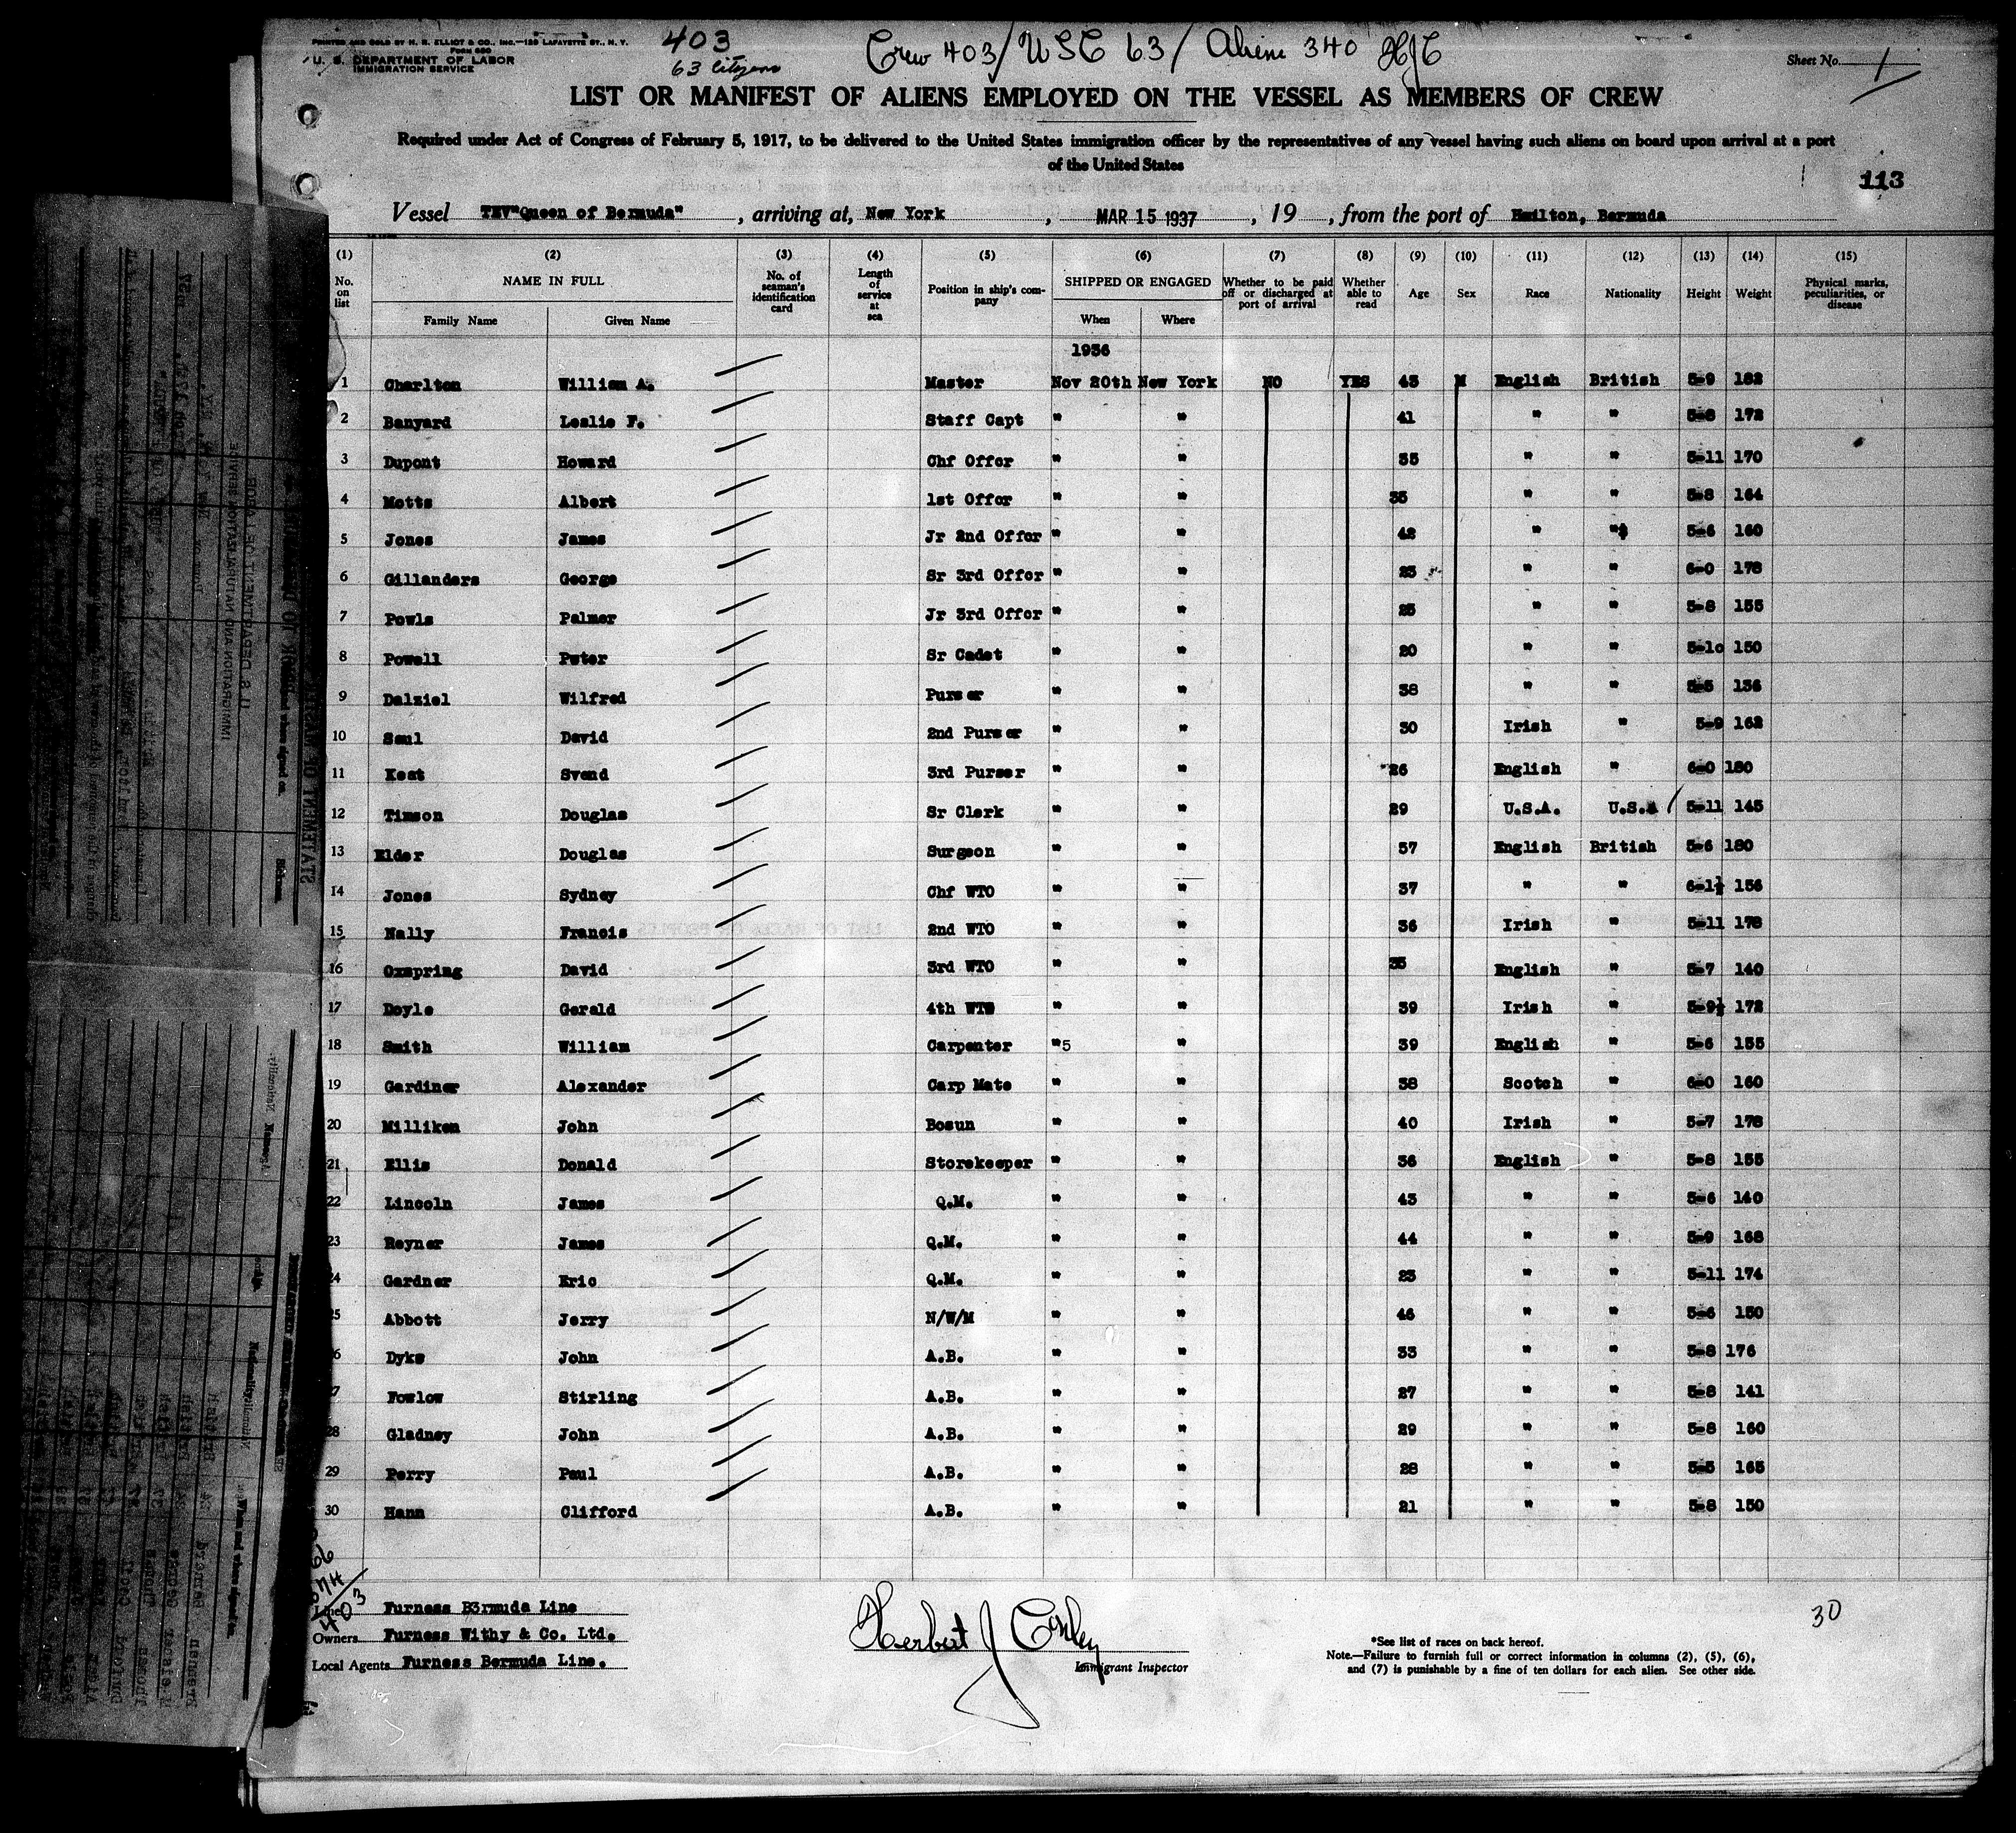 PRINTED AND SOLD BY H. E. ELLIOT & CO., INC.—129 LAFAYETTE ST., N. Y.
FORM 680
U. S. DEPARTMENT OF LABOR
IMMIGRATION SERVICE
403
63 Citizens
Crew 403/ USC 63/ Aliens 340 HJC
Sheet No. 1
LIST OR MANIFEST OF ALIENS EMPLOYED ON THE VESSEL AS MEMBERS OF CREW
Required under Act of Congress of February 5, 1917, to be delivered to the United States immigration officer by the representatives of any vessel having such aliens on board upon arrival at a port
of the United States
113
Vessel TEV"Queen of Bermuda", arriving at, New York, MAR 15 1937, 19 , from the port of Hmilton, Bermuda
(1) (2) (3) (4) (5) (6) (7) (8) (9) (10) (11) (12) (13) (14) (15)
No. on list NAME IN FULL Family Name Given Name No. of seaman's identification card Length of service at sea Position in ship's company SHIPPED OR ENGAGED When Where Whether to be paid off or discharged at port of arrival Whether able to read Age Sex Race Nationality Height Weight Physical marks, peculiarities, or disease
1936
1 Charlton William A. Master Nov 20th New York NO YES 43 M English British 5-9 182
2 Banyard Leslie F. Staff Capt " " 41 " " 5-8 172
3 Dupont Howard Chf Offer " " 35 " " 5-11 170
4 Motts Albert 1st Offer " " 35 " " 5-8 164
5 Jones James Jr 2nd Offer " " 42 " " 5-6 160
6 Gillanders George Sr 3rd Offer " " 25 " " 6-0 178
7 Powls Palmer Jr 3rd Offer " " 25 " " 5-8 155
8 Powell Peter Sr Cadet " " 20 " " 5-10 150
9 Dalziel Wilfred Purser " " 38 " " 5-5 136
10 Saul David 2nd Purser " " 30 Irish " 5-9 162
11 Keat Svend 3rd Purser " " 26 English " 6-0 180
12 Timson Douglas Sr Clerk " " 29 U.S.A. U.S.A 5-11 145
13 Elder Douglas Surgeon " " 57 English British 5-6 180
14 Jones Sydney Chf WTO " " 37 " " 6-1½ 156
15 Nally Francis 2nd WTO " " 36 Irish " 5-11 178
16 Oxspring David 3rd WTO " " 35 English " 5-7 140
17 Doyle Gerald 4th WTO " " 39 Irish " 5-9½ 172
18 Smith William Carpenter "5 " 39 English " 5-6 155
19 Gardiner Alexander Carp Mate " " 38 Scotch " 6-0 160
20 Milliken John Bosun " " 40 Irish " 5-7 178
21 Ellis Donald Storekeeper " " 36 English " 5-8 155
22 Lincoln James Q.M. " " 43 " " 5-6 140
23 Reyner James Q.M. " " 44 " " 5-9 168
24 Gardner Eric Q.M. " " 23 " " 5-11 174
25 Abbott Jerry N/W/M " " 46 " " 5-6 150
26 Dyke John A.B. " " 33 " " 5-8 176
27 Fowlow Stirling A.B. " " 27 " " 5-8 141
28 Gladney John A.B. " " 29 " " 5-8 160
29 Perry Paul A.B. " " 28 " " 5-5 165
30 Hann Clifford A.B. " " 21 " " 5-8 150
403
30
Line Furness B3rmuda Line
Owners Furness Withy & Co. Ltd.
Local Agents Furness Bermuda Line.
Herbert J Conley
Immigrant Inspector
*See list of races on back hereof.
Note.—Failure to furnish full or correct information in columns (2), (5), (6),
and (7) is punishable by a fine of ten dollars for each alien. See other side.